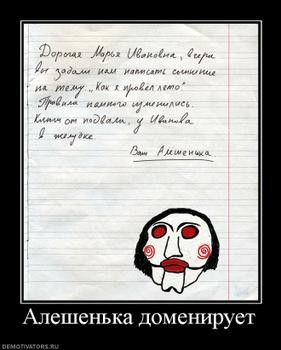 Дорогая Марья Ивановна, вчера
вы задали нам написать сочинение
на тему „Как я провел лето"
Правила немного изменились.
Ключ от подвала, у Иванова
в желудке.
Ваш Алёшенька.
Алешенька доменирует
DEMOTIVATORS.RU